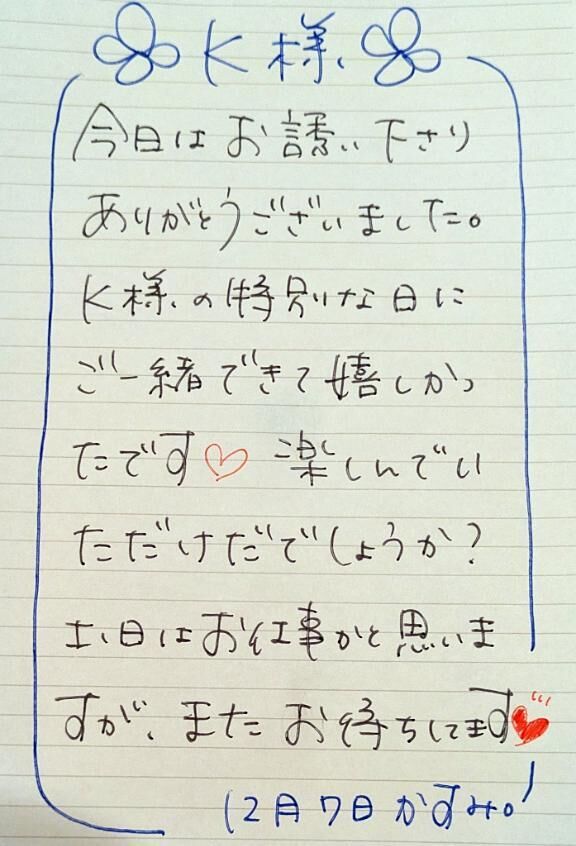 K様
今日はお誘い下さり
ありがとうございました。
K様の特別な日に
ご一緒できて嬉しかっ
たです♡ 楽しんでい
ただけだでしょうか?
土日はお仕事かと思いま
すが、またお待ちしてます♥
12月7日 かすみ。